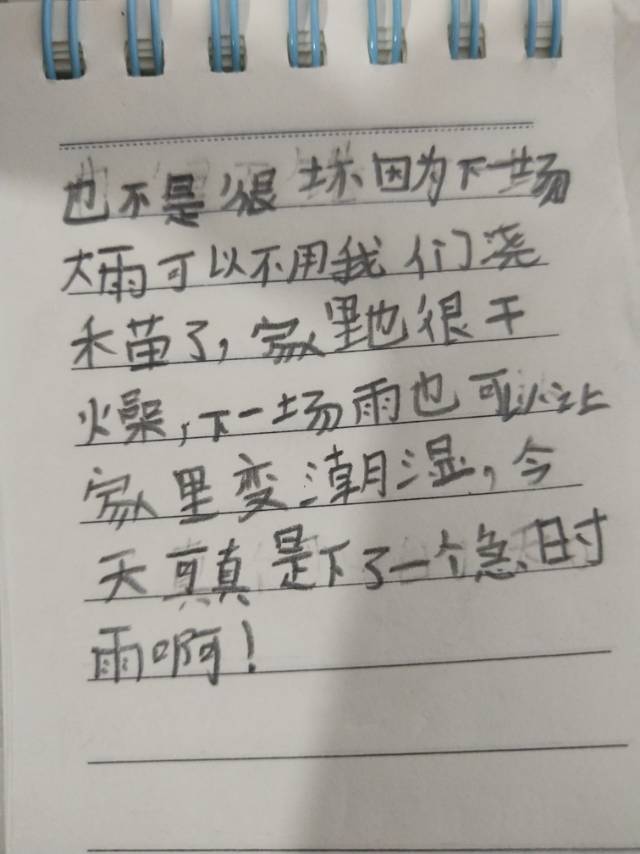 也不是很坏因为下一场
大雨可以不用我们浇
禾苗了，家里也很干
燥，下一场雨也可以让
家里变潮湿，今
天可真是下了一个急时
雨啊！